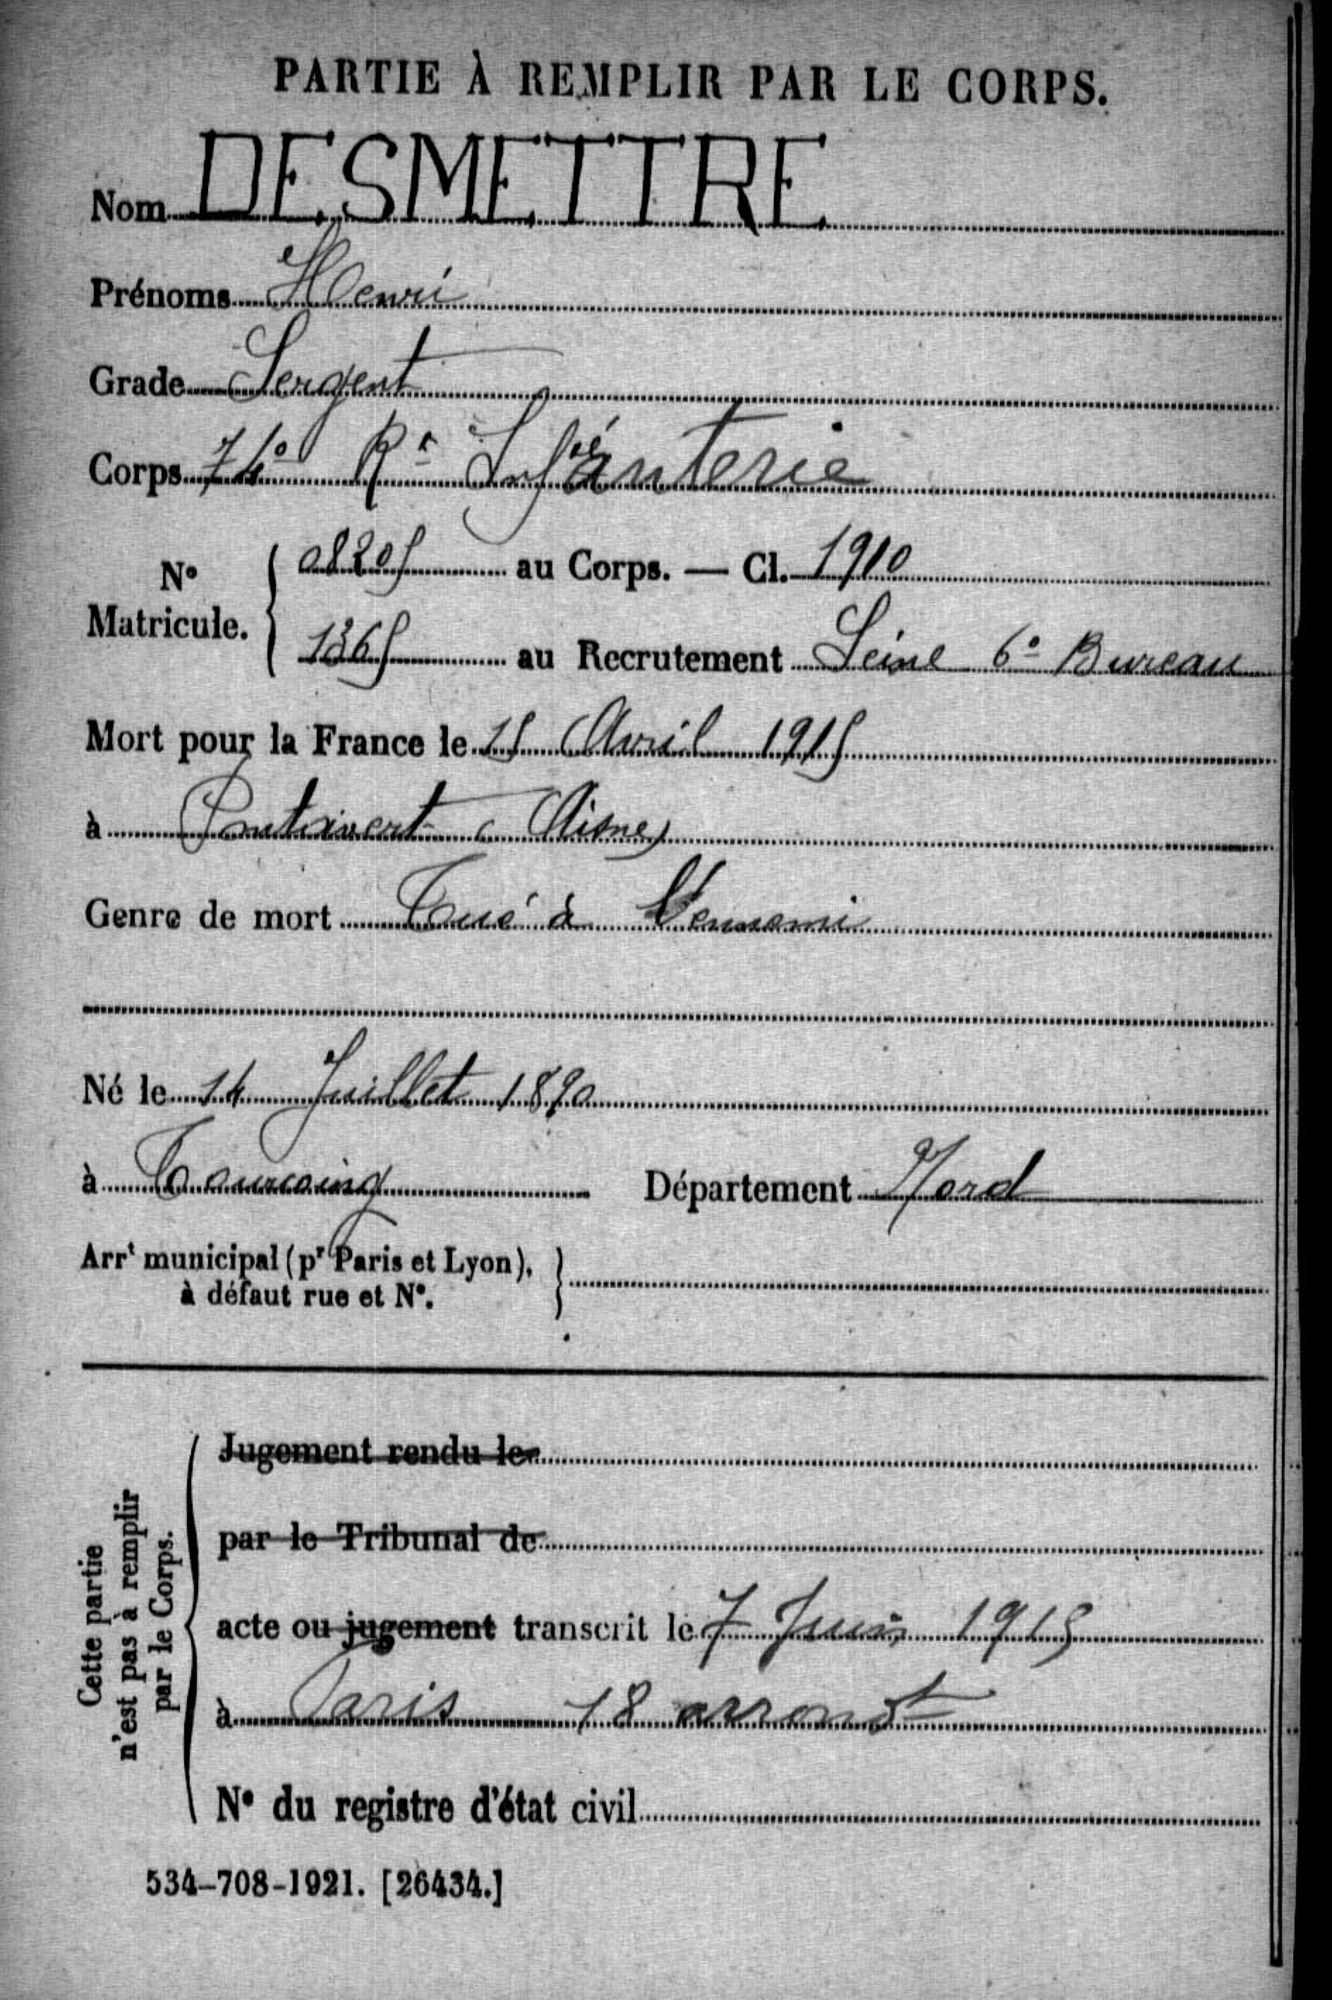 PARTIE À REMPLIR PAR LE CORPS.
Nom DESMETTRE
Prénoms Henri
Grade Sergent
Corps 74e Rt Infanterie
No Matricule. 08205 au Corps. — Cl. 1910
1365 au Recrutement Seine 6e Bureau
Mort pour la France le 15 Avril 1915
à Pontavert (Aisne)
Genre de mort Tué à l'ennemi
Né le 14 Juillet 1890
à Tourcoing Département Nord
Arrt municipal (pr Paris et Lyon),
à défaut rue et No.
Cette partie
n'est pas à remplir
par le Corps.
Jugement rendu le
par le Tribunal de
acte ou jugement transcrit le 7 Juin 1915
à Paris 18 arrondt
No du registre d'état civil
534-708-1921. [26434.]